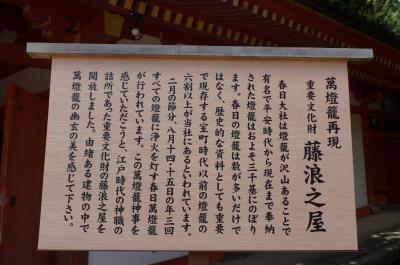 萬燈籠再現
重要文化財 藤浪之屋
春日大社は燈籠が沢山あることで
有名で平安時代から現在まで奉納
された燈籠はおよそ三千基にのぼり
ます。春日の燈籠は数が多いだけで
はなく、歴史的な資料としても重要
で現存する室町時代以前の燈籠の
六割以上が当社にあるといわれています。
二月の節分、八月十四・十五日の年三回
すべての燈籠に浄火を灯す春日萬燈籠
が行われています。この萬燈籠神事を
感じていただこうと、江戸時代の神職の
詰所であった重要文化財の藤浪之屋を
開放しました。由緒ある建物の中で
萬燈籠の幽玄の美を感じて下さい。